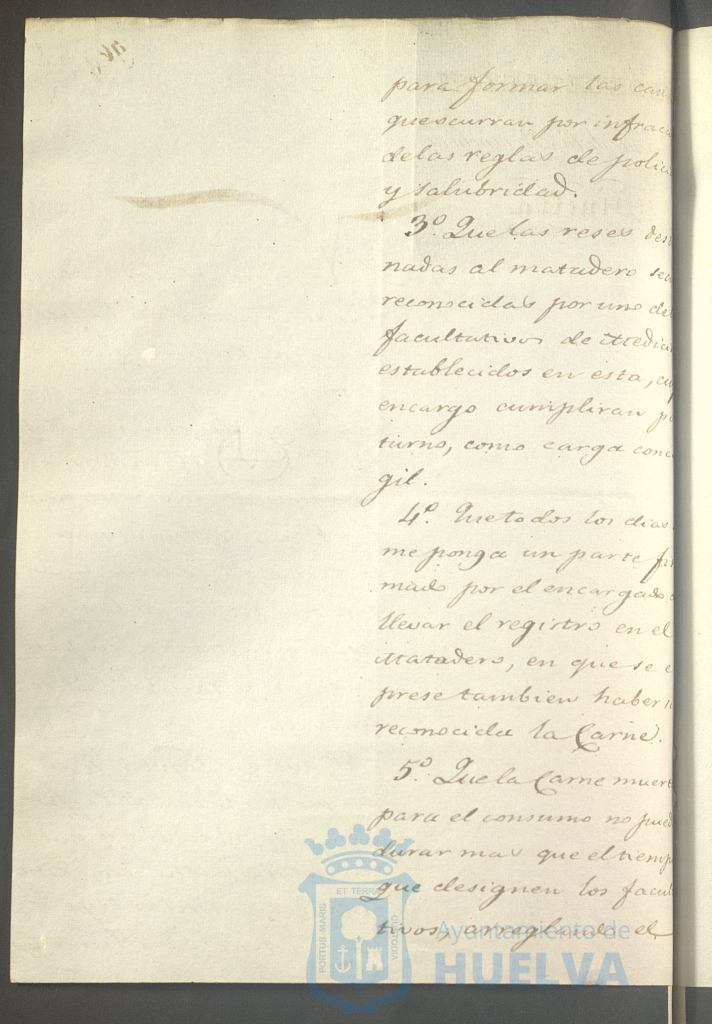 para formar las cau
que ocurran por infracc
de las reglas de polic
y salubridad.
3º. Que las reses des
nadas al matadero se
reconocidas por uno de
facultativos de Medici
establecidos en esta, cu
encargo cumpliran p
turno, como carga conc
gil.
4º. Que todos los dias
me ponga un parte fir
mado por el encargado
llevar el registro en el
Matadero, en que se e
prese tambien haber s
reconocida la Carne.
5º. Que la Carne muert
para el consumo no pued
durar mas que el tiemp
que designen los facul
tivos, arreglado el
PORTUS MARIS
ET TERRÆ
CUSTODIA
Ayuntamiento de
HUELVA